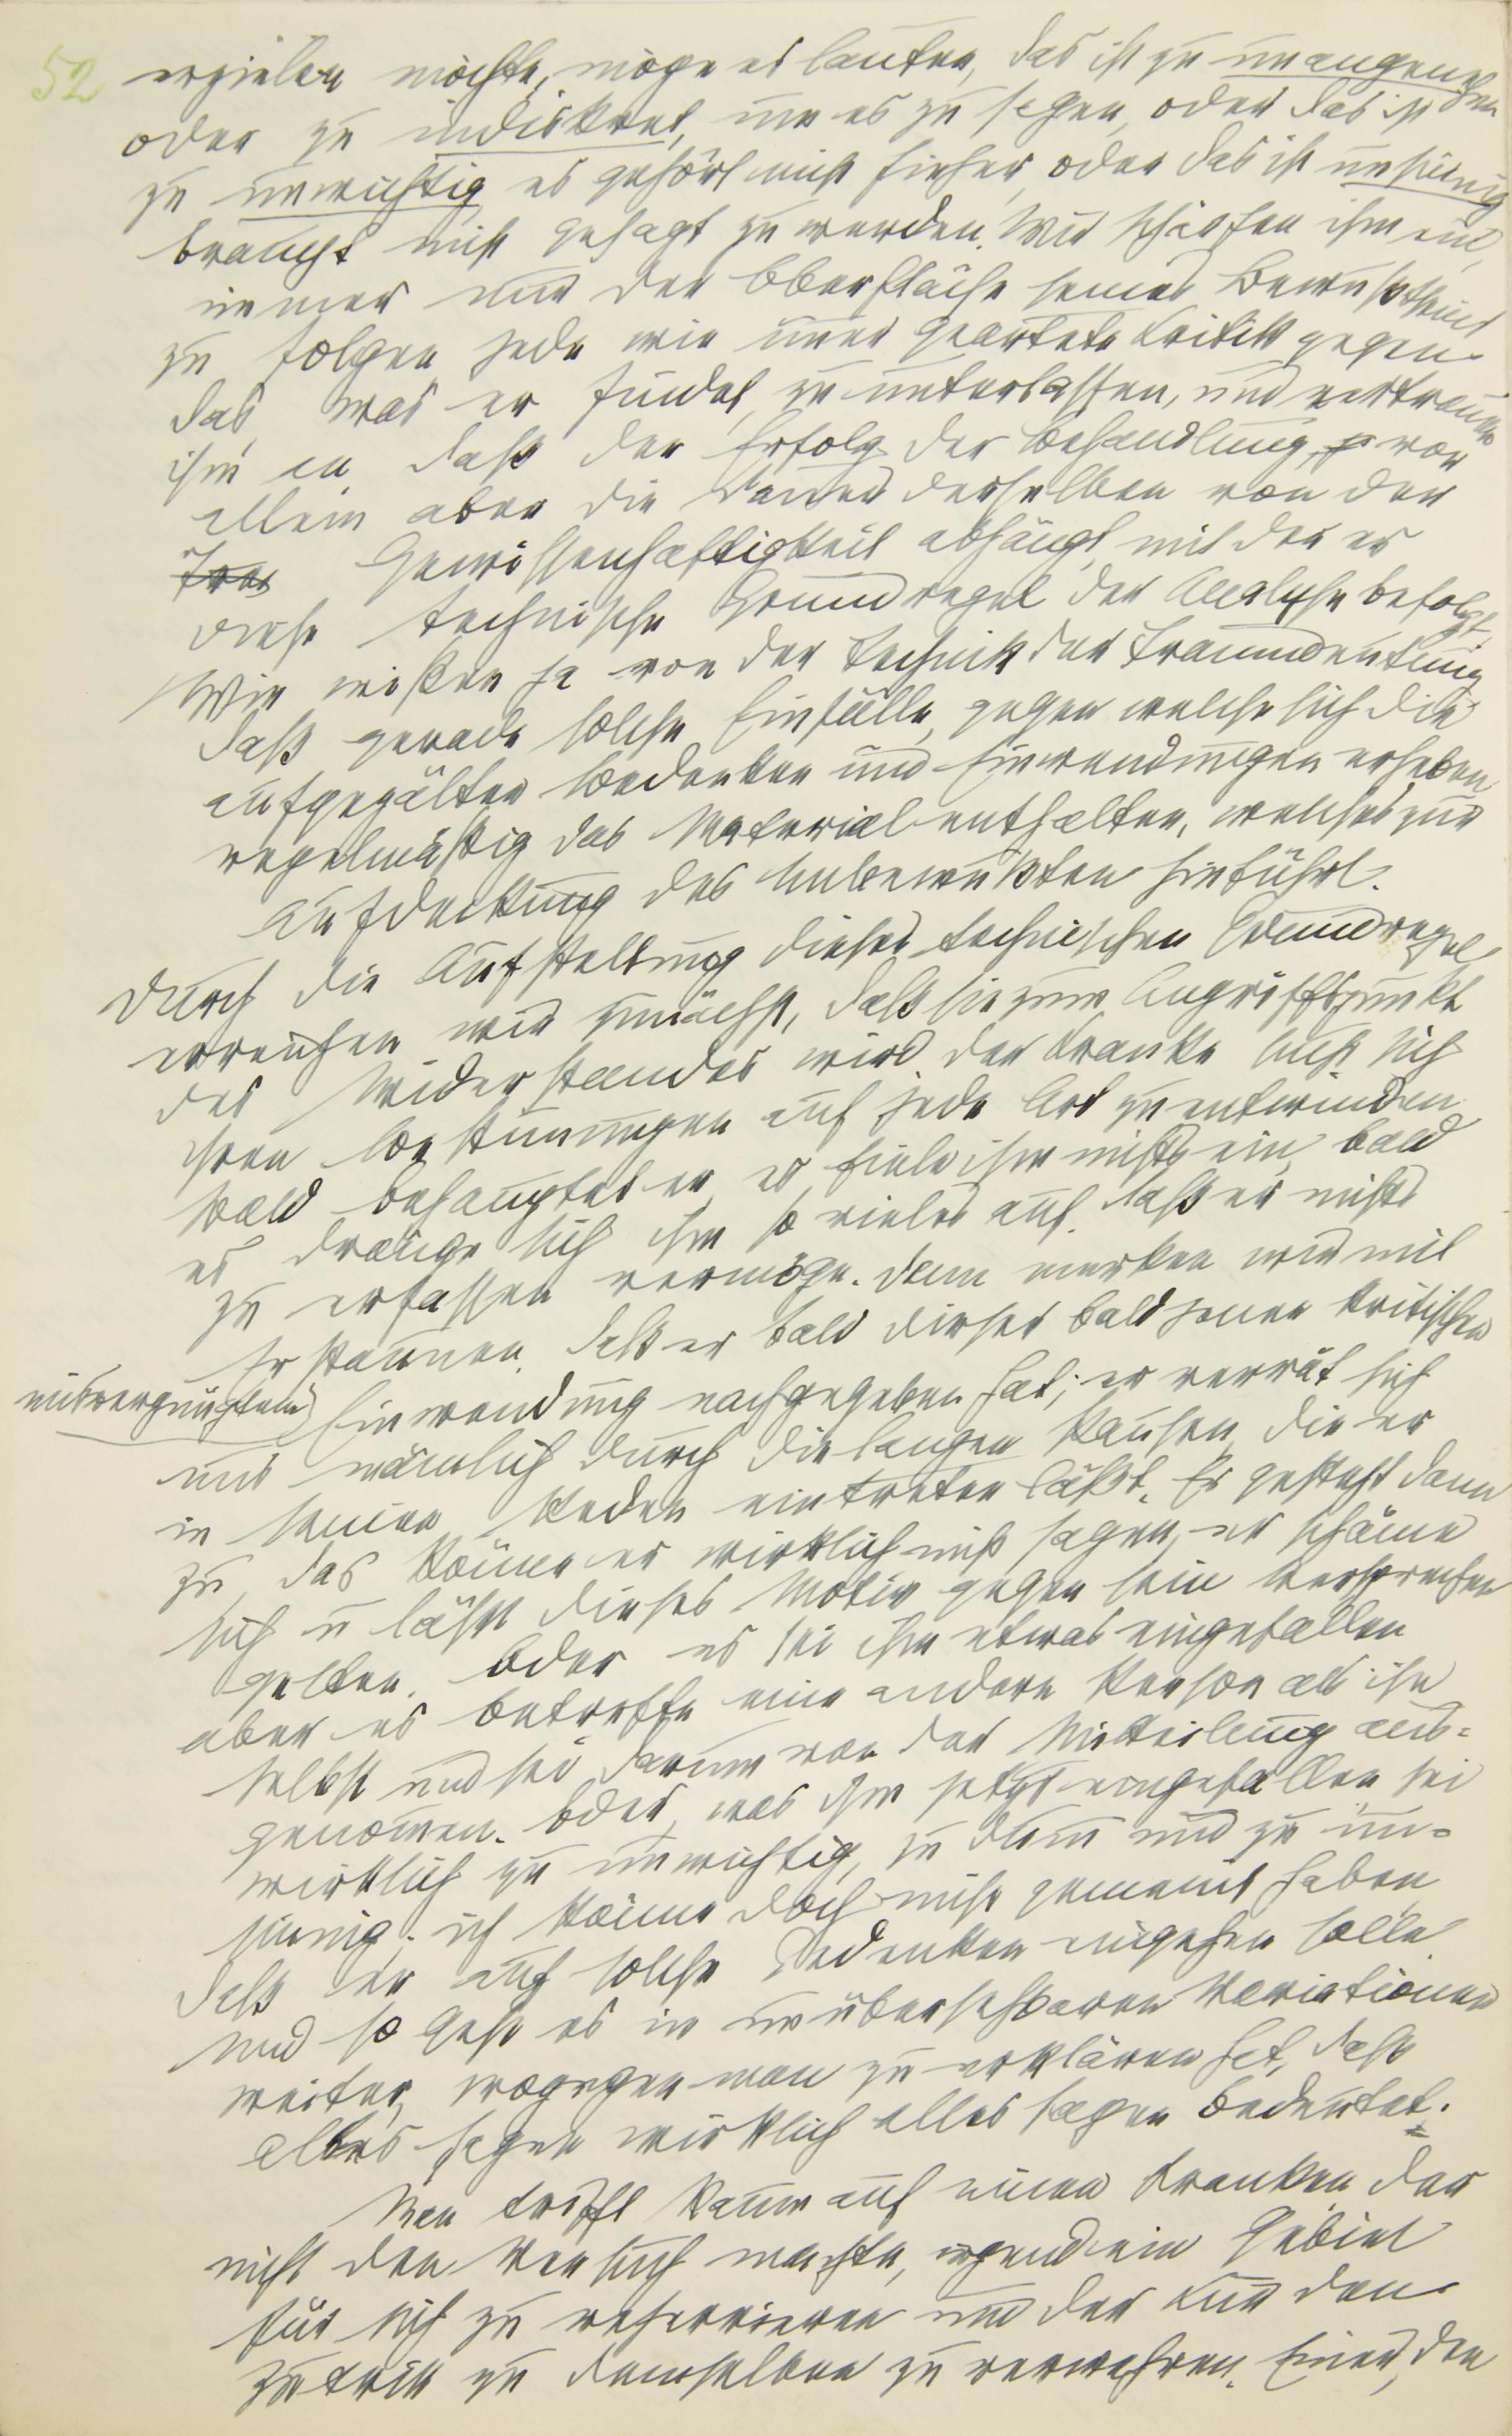 52
erzielen möchte, möge es lauten, das ist zu unangenehm
oder zu indiskret, um es zu sagen, oder das ist
zu unwichtig es gehört nicht hieher, oder das ist unsinnig
braucht nicht gesagt zu werden. Wir schärfen ihm ein,
immer nur der Oberfläche seines Bewußtseins
zu folgen jede wie immer geartete Kritik gegen
das, was er findet, zu unterlassen, und vertrauen
ihm an, daß der Erfolg der Behandlung, vor
allem aber die Dauer derselben von der
Gewissenhaftigkeit abhängt, mit der er
diese technische Grundregel der Analyse befolgt.
Wir wißen ja von der Technik der Traumdeutung
daß gerade solche Einfälle, gegen welche sich die
aufgezälten Bedenken und Einwendungen erheben
regelmäßig das Material enthalten, welches zur
Aufdeckung des Unbewußten hinführt.
Durch die Aufstellung dieser technischen Grundregel
erreichen wir zunächst, daß sie zum Angriffspunkt
des Widerstandes wird. Der Kranke sucht sich
ihren Bestimmungen auf jede Art zu entwinden
Bald behauptet er, es fiele ihm nichts ein, bald
es dränge sich ihm so vieles auf, daß er nichts
zu erfassen vermöge. Dann merken wir mit
Erstaunen, daß er bald dieser bald jener kritischen
mißvergnügtem Einwendung nachgegeben hat; er verrät sich
uns nämlich durch die langen Pausen, die er
in seinen Reden eintreten läßt. Er gesteht dann
zu, das könne er wirklich nicht sagen, er schäme
sich u läßt dieses Motiv gegen sein Versprechen
gelten. Oder es sei ihm etwas eingefallen
aber es betreffe eine andere Person als ihn
selbst und sei darum von der Mitteilung aus-
genommen. Oder, was ihm jetzt eingefallen sei
wirklich zu unwichtig, zu dumm und zu un-
sinnig; ich könne doch nicht gemeint haben
daß er auf solche Gedanken eingehen solle
und so geht es in unübersehbaren Variationen
weiter, wogegen man zu erklären hat, daß
alles sagen wirklich alles sagen bedeutet.
Man trifft kaum auf einen Kranken der
nicht den Versuch machte, irgend ein Gebiet
für sich zu reservieren um der Kur den
Zutritt zu demselben zu verwehren. Einer, den